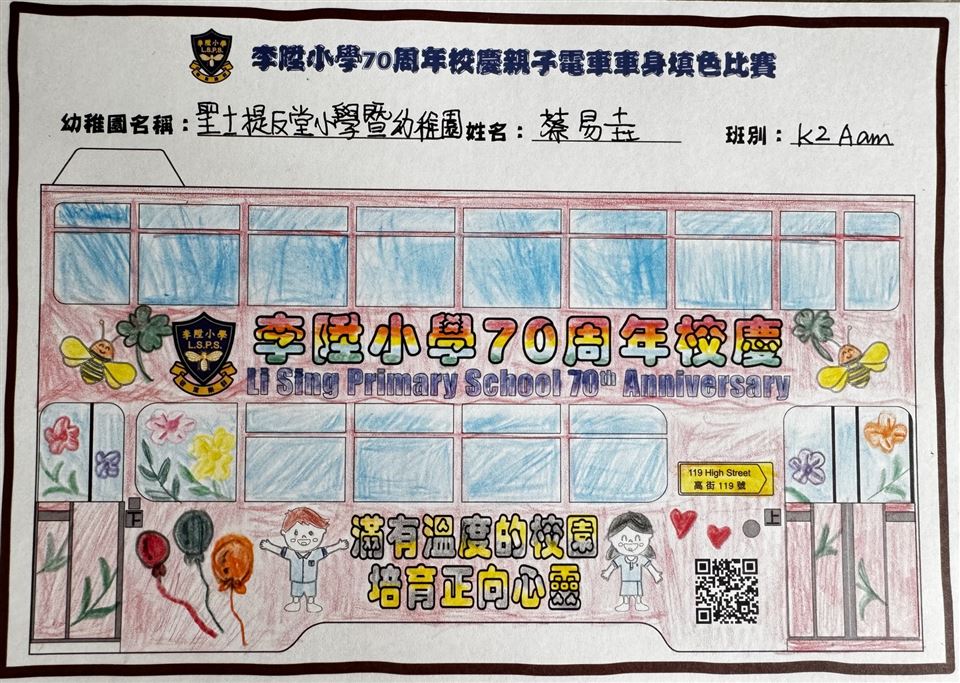 李陞小學
L.S.P.S.
李陞小學70周年校慶親子電車車身填色比賽
幼稚園名稱：聖士提反堂小學暨幼稚園 姓名：蔡易壵 班別：K2 Aam
李陞小學
L.S.P.S.
李陞小學70周年校慶
Li Sing Primary School 70th Anniversary
119 High Street
高街 119 號
下
上
滿有溫度的校園
培育正向心靈